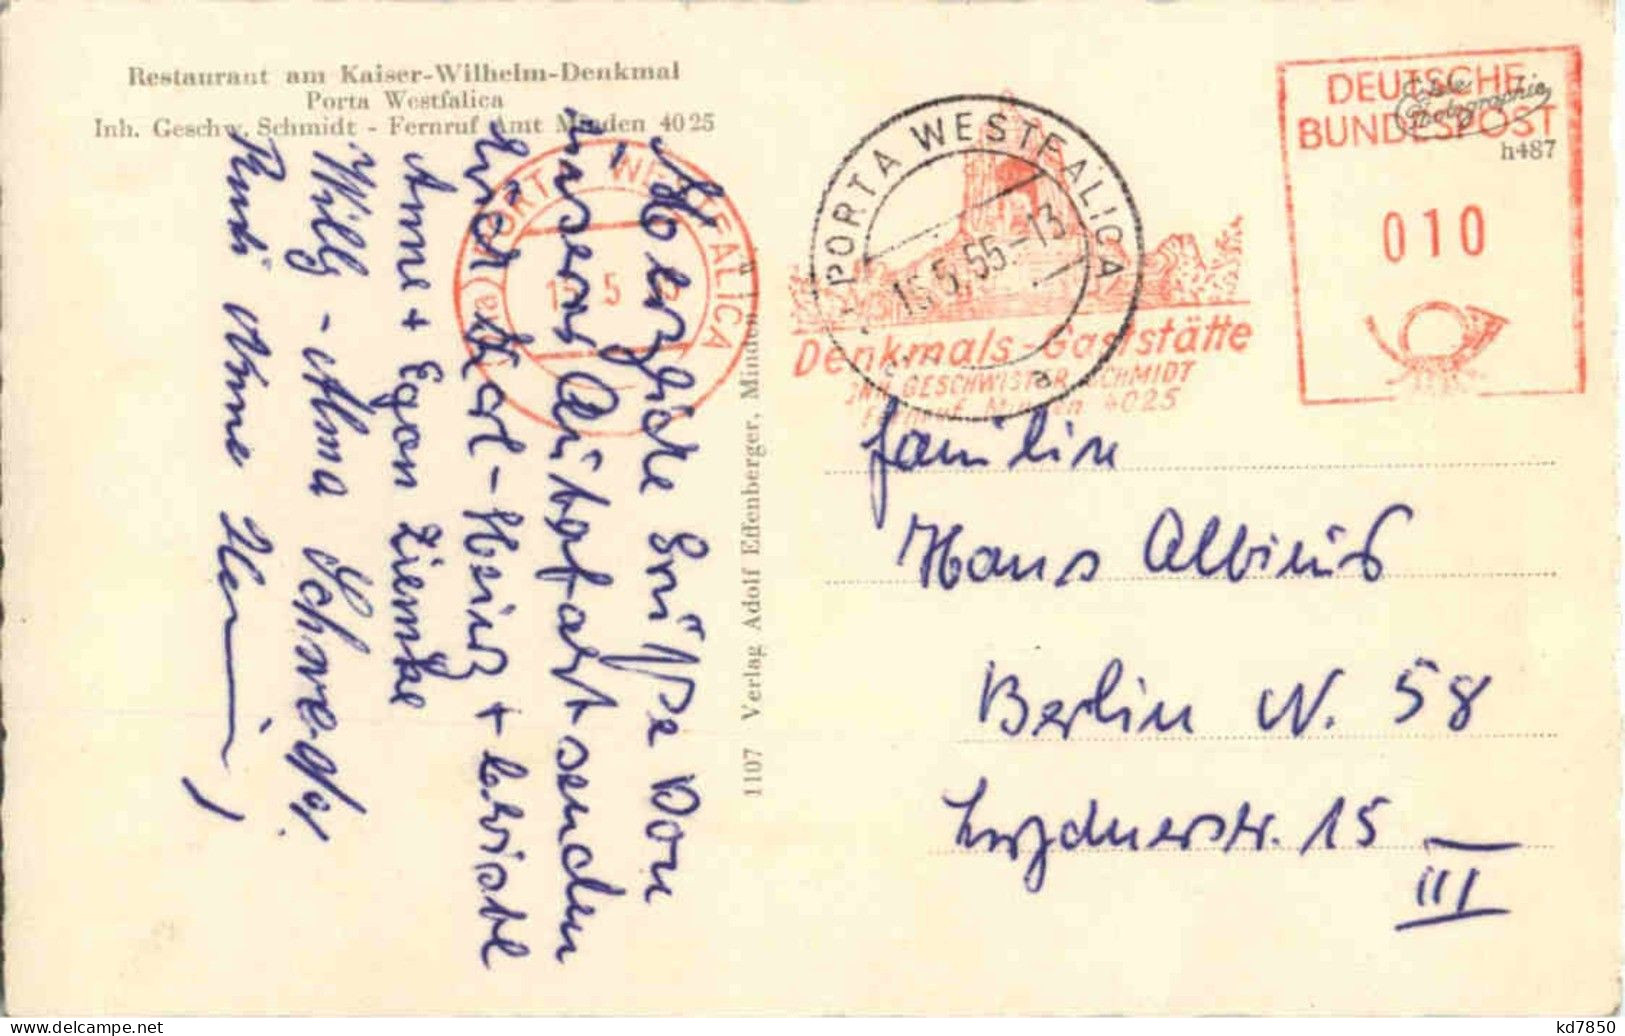 Restaurant am Kaiser-Wilhelm-Denkmal
Porta Westfalica
Inh. Geschw. Schmidt - Fernruf Amt Minden 4025
Herzliche Grüße von
unserer Autofahrt senden
Euch Karl-Heinz +
Anne + Egon Ziemke
Willy - Alma
Rudi Anne
1107 Verlag Adolf Effenberger, Minden
PORTA WESTFALICA
5
PORTA WESTFALICA
15.5.55.-13
a
Denkmals-Gaststätte
INH. GESCHWISTER SCHMIDT
Fernruf Minden 4025
DEUTSCHE
BUNDESPOST
010
Echte
Photographie
h487
Familie
Hans Albinus
Berlin N. 58
15
III
kd7850